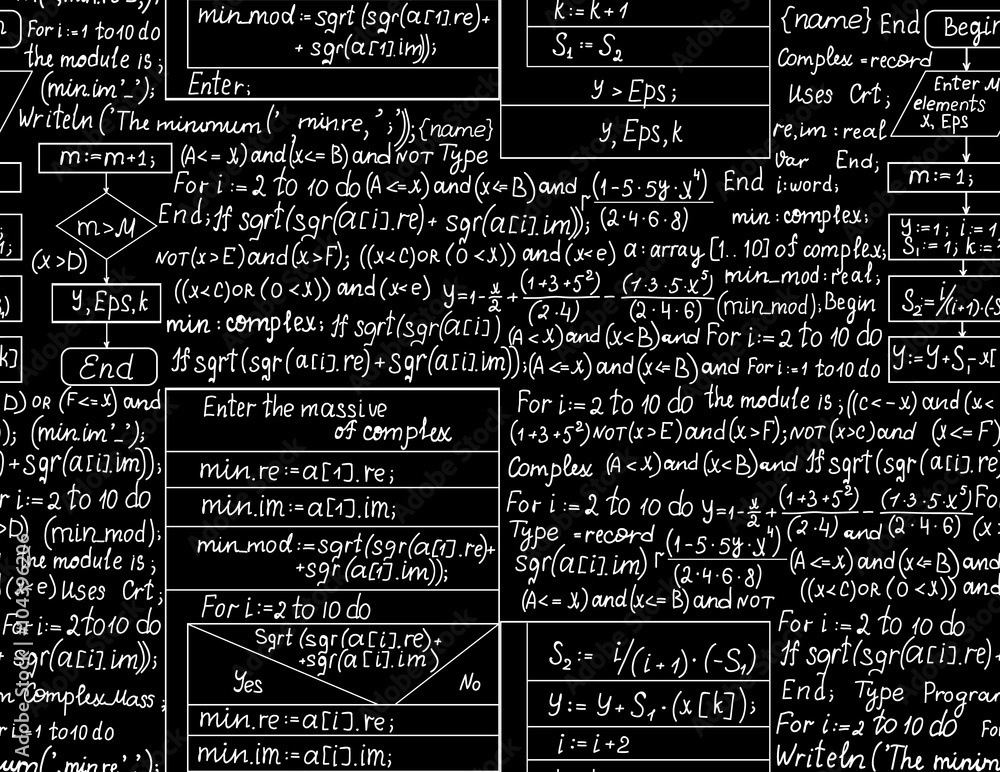 For i:=1 to10 do
the module is ;
(min.im'_');
Writeln ('The minumum(' minre, ';'));{name}
min_mod:=sgrt (sgr(a[1].re)+
+ sgr(a[1].im));
Enter;
k:= k+1
S₁ := S₂
y > Eps;
y, Eps, k
{name} End
Begin
Complex =record
Uses Crt;
Enter M
elements
x, Eps
re,im : real
Var End;
i:word;
m:= 1;
m:=m+1;
m>M
(x>D)
y, Eps, k
End
(A<= x) and(x<= B) and NOT Type
For i := 2 to 10 do (A <=x) and (x<=B) and
(1-5·5y·x⁴)
(2·4·6·8)
End
End; If sgrt(sgr(a[i].re)+ sgr(a[i].im));
min : complex;
NOT(x>E) and(x>F); ((x<C)OR (O <x)) and (x<e) a: array [1..10] of complex;
((x<C)OR (O <x)) and (x<e) y=1-x/2+(1+3+5²)/(2·4)-(1·3·5·x⁵)/(2·4·6)
min_mod:real;
(min_mod);Begin
min : complex; If sgrt(sgr(a[i]) (A<x)and (x<B)and For i:= 2 to 10 do
If sgrt(sgr(a[i].re)+sgr(a[i].im));(A <=x) and (x<=B) and For i:=1 to10 do
y:=1; i:= 1
S₁:= 1; k:=
S₂:= i/(i+1)·(-S
y:=y+S₁·x[
D) OR (F<=x) and
); (min.im'_');
)+sgr(a[i].im));
r i:= 2 to 10 do
>D) (min_mod);
the module is ;
e) Uses Crt;
For i:= 2to10 do
+ sgr(a[i].im));
n Complex Mass ;
r i:=1 to10 do
um(' minre';');
Enter the massive
of complex
min.re:=a[1].re;
min.im:=a[1].im;
min_mod:=sgrt(sgr(a[1].re)+
+sgr (a[1].im));
For i:=2 to 10 do
Sgrt (sgr(a[i].re)+
+sgr(a[i].im)
Yes
No
min.re:=a[i].re;
min.im:=a[i].im;
For i:= 2 to 10 do the module is ;((c<-x) and (x<
(1+3+5²)NOT(x>E) and (x>F); NOT(x>C)and (x<=F)
Complex (A<x)and(x<B)and If sgrt(sgr(a[i].re
For i:= 2 to 10 do y=1-x/2+(1+3+5²)/(2·4) and -(1·3·5·x⁵)/(2·4·6) Fo
Type =record
(x
sgr(a[i].im)
(1-5·5y·x⁴)
(2·4·6·8)
(A<=x) and (x<=B) and
((x<C)OR (O <x)) and
(A<= x) and(x<= B) and NOT
S₂:= i/(i+1)·(-S₁)
y:= y+S₁·(x[k]);
i:= i+2
For i:= 2 to 10 do
If sgrt(sgr(a[i].re)+
End; Type Program
For i:=2 to 10 do Fo
Writeln ('The minim
Adobe Stock | #104396206